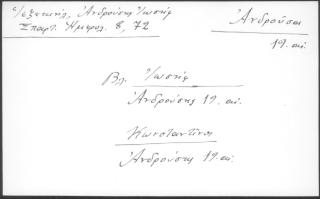 Ἀνδρούσης Ἰωσήφ
Σπαρτ. Ἡμερολ. 8, 72
Ἀνδρούσαι
19. αἰ.
Βλ. Ἰωσήφ
Ἀνδρούσης 19. αἰ.
Κωνσταντῖνος
Ἀνδρούσης 19. αἰ.